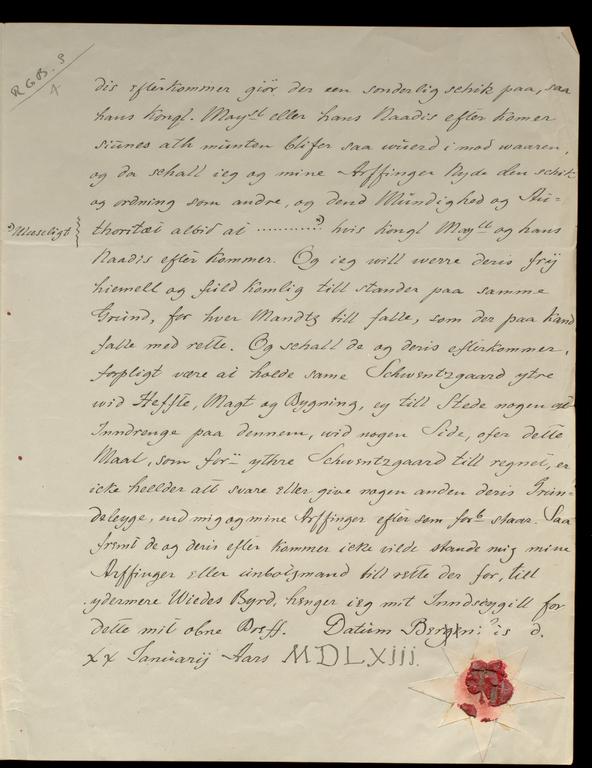 RGB. S
4
dis efterkommer giör der een sonderlig schik paa, saa
hans Kongl. Mayst eller hans Raadis efter komer
siünes ath münten blifer saa wüerd i mod waaren,
og da schall ieg og mine Arffinger Nyde den schik
og ordning som andre, og dend Mündighed og Au-
thoritæt altid at ............ hvis Kongl Maytt og hans
Ulæseligt
Raadis efter kommer. Og ieg will werre deris frij
hiemell og füld komlig till stander paa samme
Gründ, for hver Mandtz till falle, som der paa kand
falle med rette. Og schall de og deris efterkommer,
forpligt være at holde same Schwentzgaard ytre
wid Heffte, Magt og Bygning, ey till Stede nogen at
Inndrenge paa dennem, wid nogen Side, ofer dette
Maal, som for ythre Schwentzgaard till regnet, er
icke heelder att svare eller give nogen anden deris Grün-
deleyge, end mig og mine Arffinger efter som forb staar. Saa
fremt de og deris efter kommer icke vilde stande mig mine
Arffinger eller ünbotzmand till rette der for, till
ydermere Wiedes Byrd, henger ieg mit Inndseygill for
dette mit obne Breff. Datum is d.
XX Januarij Aars MDLXIII.